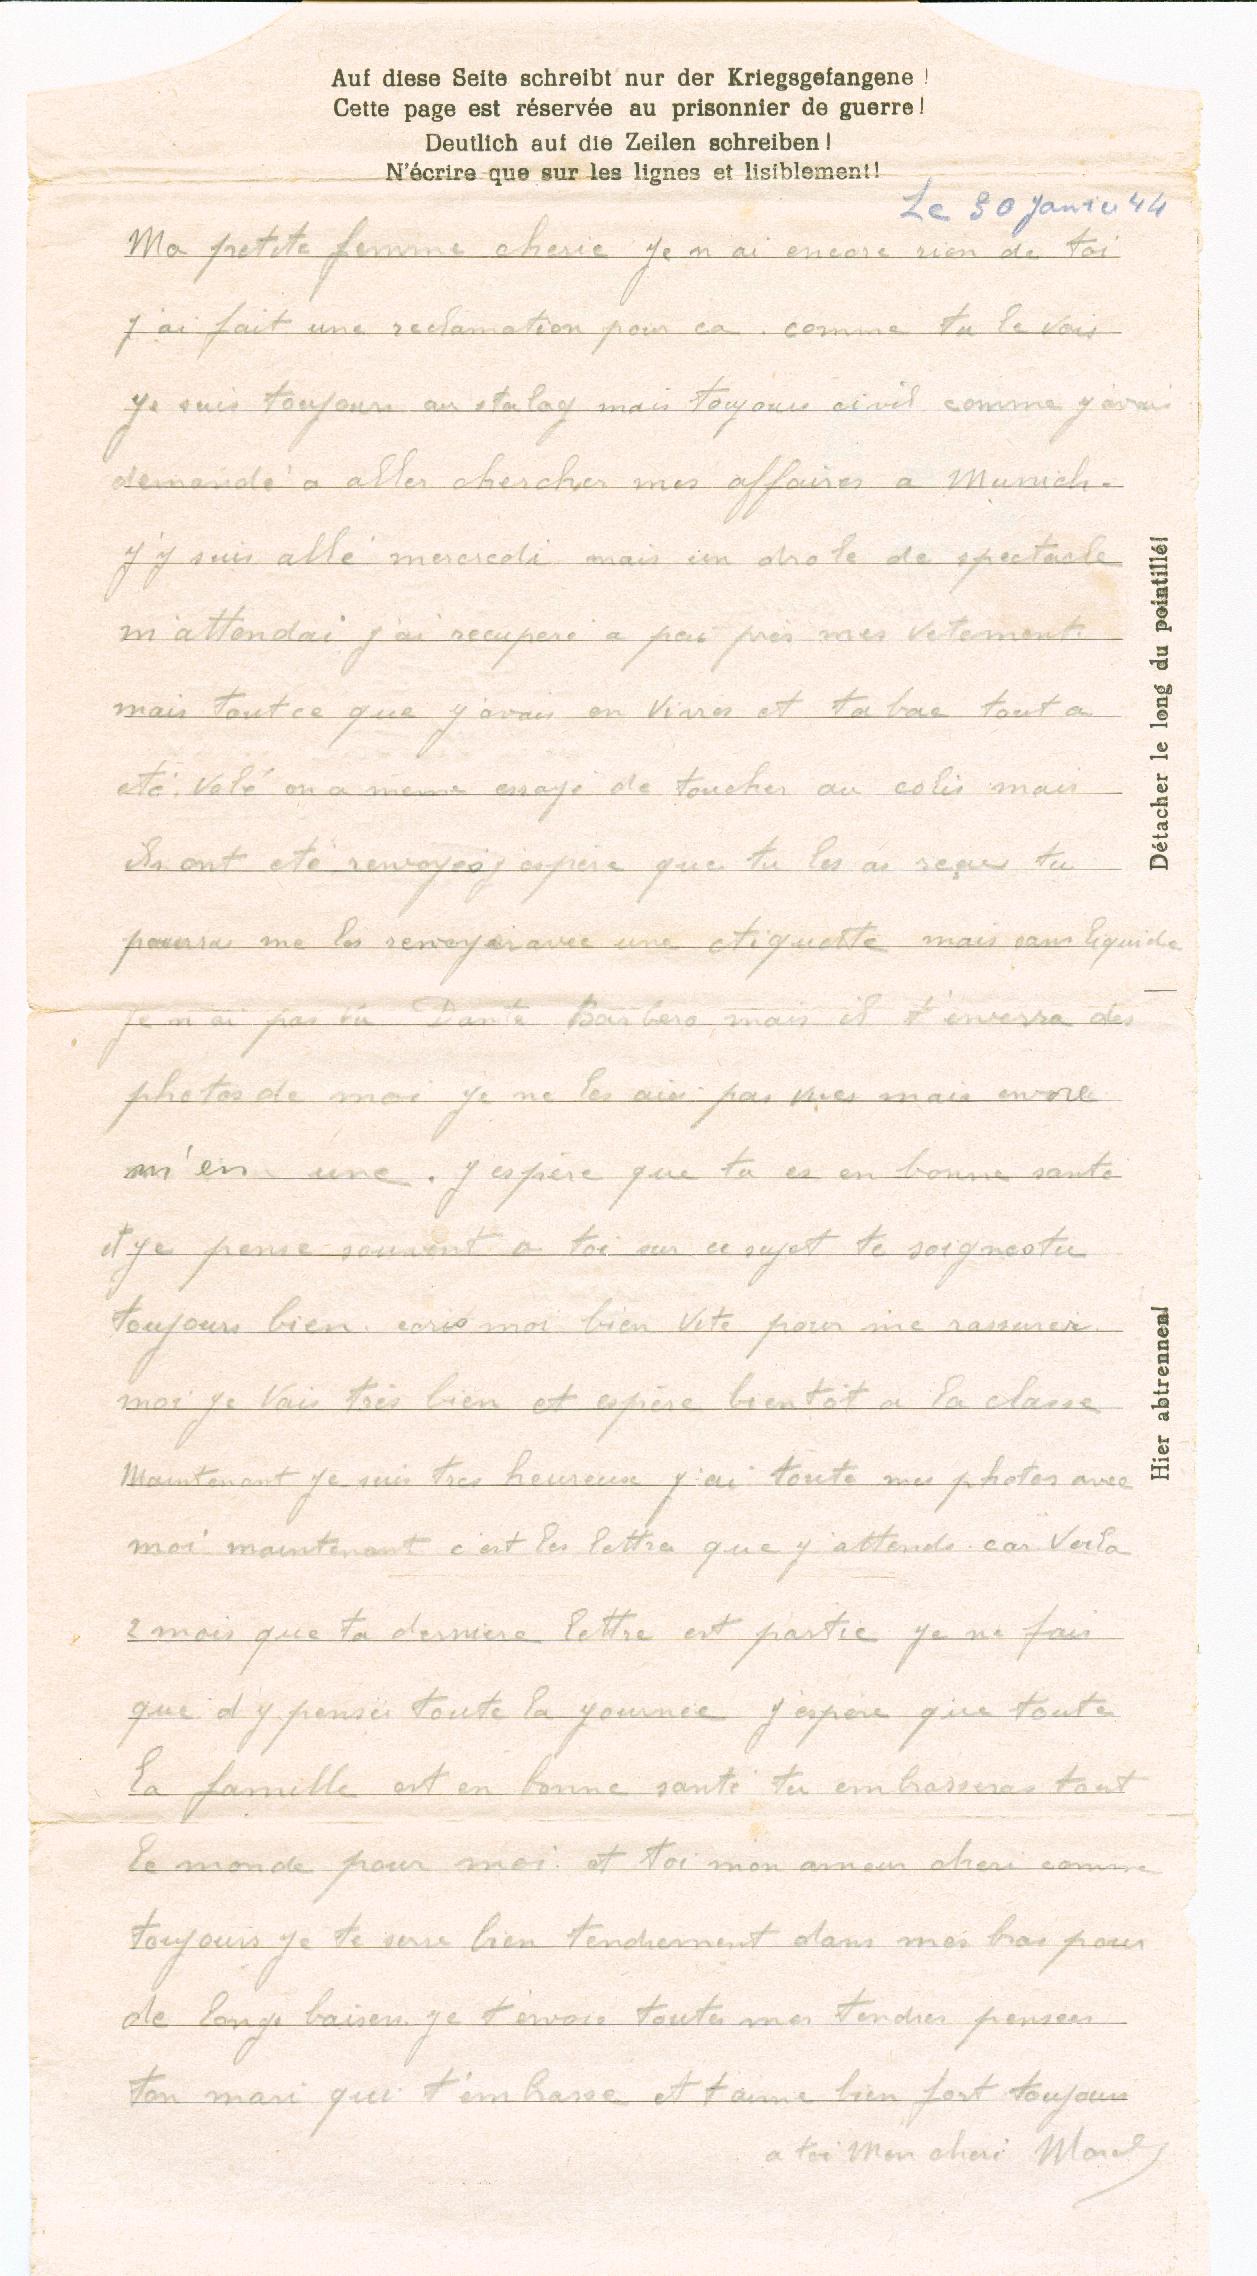 Auf diese Seite schreibt nur der Kriegsgefangene !
Cette page est réservée au prisonnier de guerre !
Deutlich auf die Zeilen schreiben !
N'écrire que sur les lignes et lisiblement !
Le 30 Janvier 44
Ma petite femme cherie je n ai encore rien de toi
j'ai fait une reclamation pour ca . comme tu le vois
je suis toujours au stalag mais toujours civil comme j'avais
demandé a aller chercher mes affaires a Munich.
j'y suis allé mercredi mais un drole de spectacle
m'attendai j'ai recuperé a peu près mes vetement
mais tout ce que j'avais en vivres et tabac tout a
eté volé on a meme essayé de toucher au colis mais
ils ont eté renvoyés j'espère que tu les as reçus tu
pourras me les renvoyer avec une etiquette mais sans liquide
Je n ai pas vu Dante Barbero mais il t'enverra des
photos de moi je ne les ai pas vues mais envoie
m'en une . J'espère que tu es en bonne santé
et je pense souvent a toi sur ce sujet te soignes tu
toujours bien . ecris moi bien vite pour me rassurer
moi je vais très bien et espère bientôt a la classe
Maintenant je suis tres heureux j'ai toute mes photos avec
moi maintenant c'est les lettres que j'attends car voila
2 mois que ta derniere lettre est partie je ne fais
que d'y penser toute la journee j'espère que toute
la famille est en bonne santé tu embrasseras tout
le monde pour moi et toi mon amour cheri comme
toujours je te serre bien tendrement dans mes bras pour
de longs baisers je t'envoie toutes mes tendres pensees
ton mari qui t'embrasse et t'aime bien fort toujours
a toi Mon cheri Marcel
Détacher le long du pointillé!
Hier abtrennen!